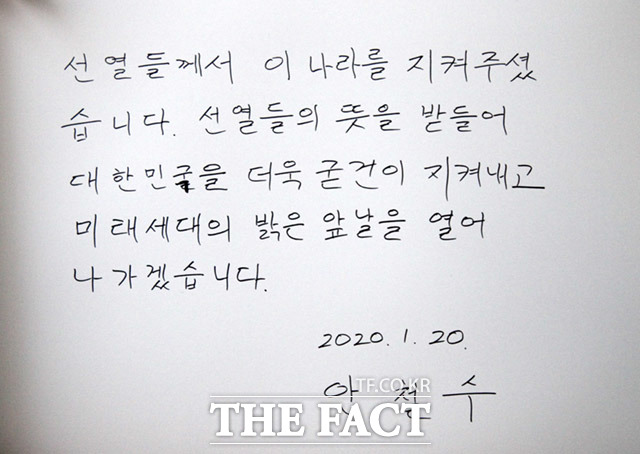 선열들께서 이 나라를 지켜주셨
습니다. 선열들의 뜻을 받들어
대한민국을 더욱 굳건이 지켜내고
미래세대의 밝은 앞날을 열어
나가겠습니다.
2020. 1. 20.
안 철 수
TF.CO.KR
THE FACT